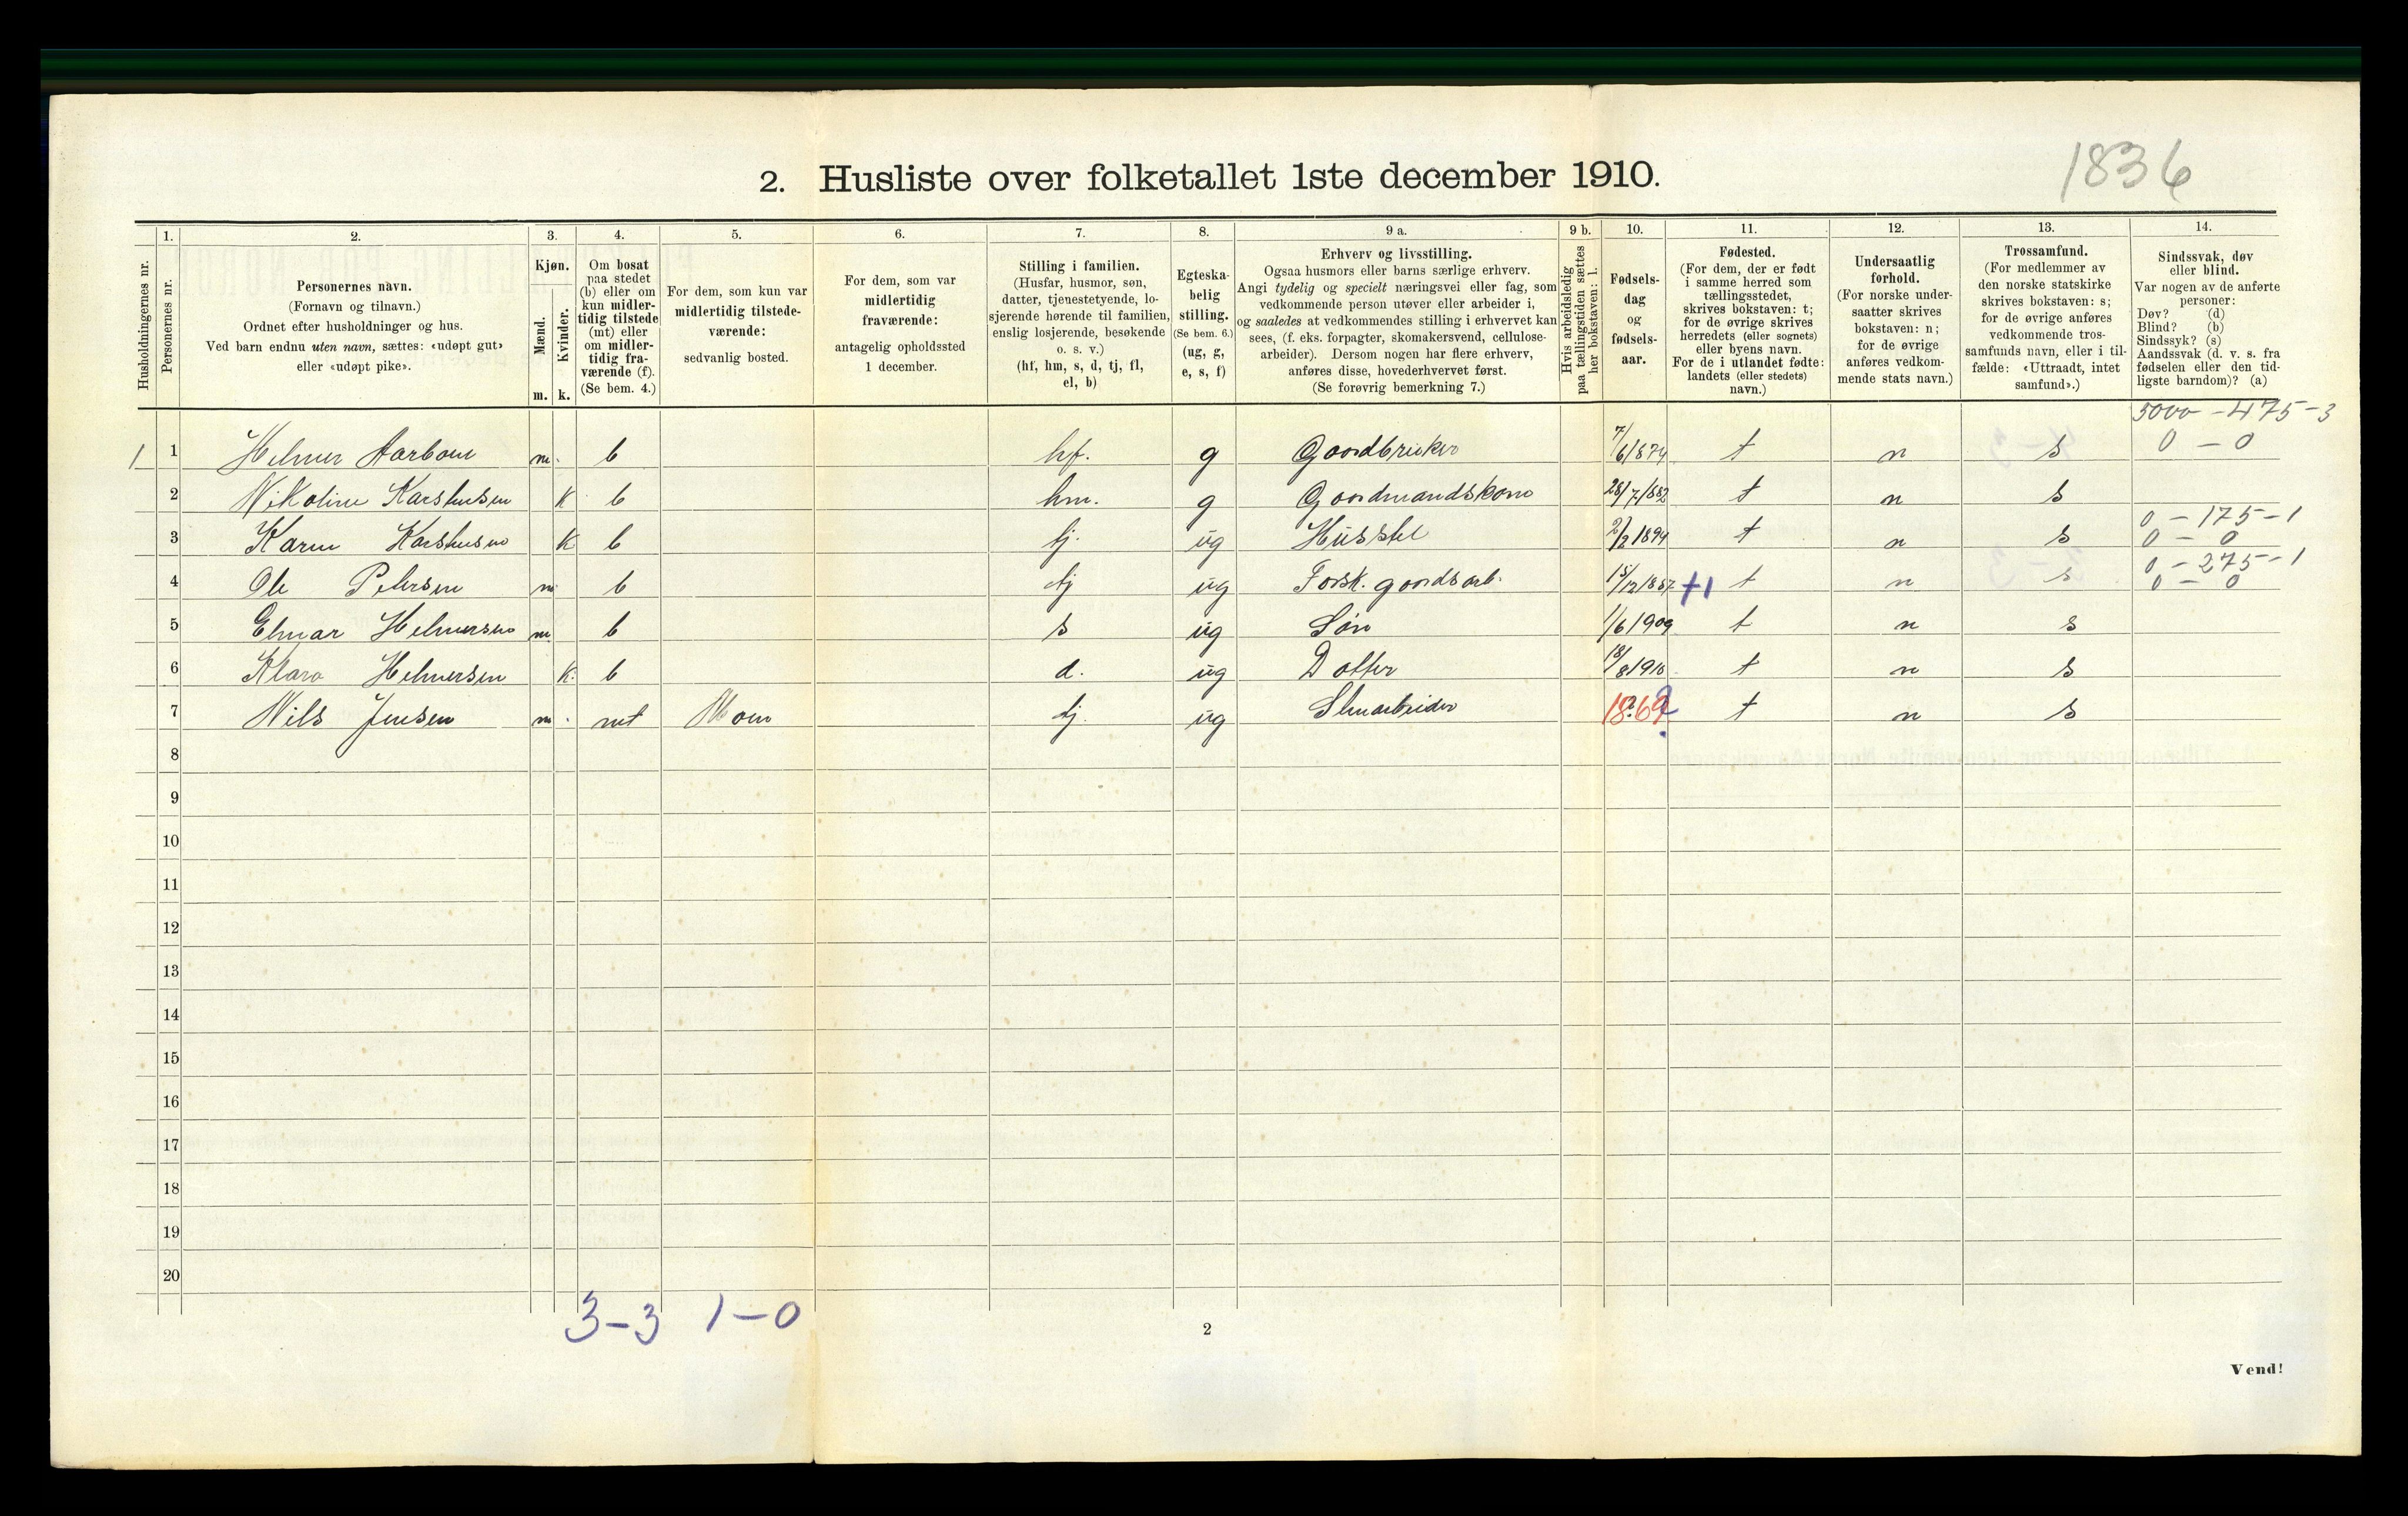 1836
2. Husliste over folketallet 1ste december 1910.
Husholdningernes nr.
1.
Personernes nr.
2.
Personernes navn.
(Fornavn og tilnavn.)
Ordnet efter husholdninger og hus.
Ved barn endnu uten navn, sættes: «udøpt gut»
eller «udøpt pike».
3.
Kjøn.
Mænd.
Kvinder.
m. k.
4.
Om bosat
paa stedet
(b) eller om
kun midler-
tidig tilstede
(mt) eller
om midler-
tidig fra-
værende (f).
(Se bem. 4.)
5.
For dem, som kun var
midlertidig tilstede-
værende:
sedvanlig bosted.
6.
For dem, som var
midlertidig
fraværende:
antagelig opholdssted
1 december.
7.
Stilling i familien.
(Husfar, husmor, søn,
datter, tjenestetyende, lo-
sjerende hørende til familien,
enslig losjerende, besøkende
o. s. v.)
(hf, hm, s, d, tj, fl,
el, b)
8.
Egteska-
belig
stilling.
(Se bem. 6.)
(ug, g,
e, s, f)
9 a.
Erhverv og livsstilling.
Ogsaa husmors eller barns særlige erhverv.
Angi tydelig og specielt næringsvei eller fag, som
vedkommende person utøver eller arbeider i,
og saaledes at vedkommendes stilling i erhvervet kan
sees, (f. eks. forpagter, skomakersvend, cellulose-
arbeider). Dersom nogen har flere erhverv,
anføres disse, hovederhvervet først.
(Se forøvrig bemerkning 7.)
9 b.
Hvis arbeidsledig
paa tællingstiden sættes
her bokstaven: l.
10.
Fødsels-
dag
og
fødsels-
aar.
11.
Fødested.
(For dem, der er født
i samme herred som
tællingsstedet,
skrives bokstaven: t;
for de øvrige skrives
herredets (eller sognets)
eller byens navn.
For de i utlandet fødte:
landets (eller stedets)
navn.)
12.
Undersaatlig
forhold.
(For norske under-
saatter skrives
bokstaven: n;
for de øvrige
anføres vedkom-
mende stats navn.)
13.
Trossamfund.
(For medlemmer av
den norske statskirke
skrives bokstaven: s;
for de øvrige anføres
vedkommende tros-
samfunds navn, eller i til-
fælde: «Uttraadt, intet
samfund».)
14.
Sindssvak, døv
eller blind.
Var nogen av de anførte
personer:
Døv? (d)
Blind? (b)
Sindssyk? (s)
Aandssvak (d. v. s. fra
fødselen eller den tid-
ligste barndom)? (a)
5000 - 475 - 3
1 1 Helmer m. b hf. g 7/6 1874 t n s 0 - 0
2 Nikoline Karstensen k b hm. g Gaardmandskone 28/7 1882 t n s
0 - 175 - 1
3 Karen Karstensen k b tj. ug Husstel 2/2 1894 t n s 0 - 0
0 - 275 - 1
4 Ole Petersen m b tj ug Forsk. gaardsarb. 15/12 1887 +1 t n s 0 - 0
5 Elmar Helmersen m. b s ug Søn 1/6 1909 t n s
6 Klara Helmersen k. b d. ug Datter 18/8 1910 t n s
7 Nils Jensen m. mt tj. ug 1869 ? t n s
8
9
10
11
12
13
14
15
16
17
18
19
20
3-3 1-0
2
Vend!